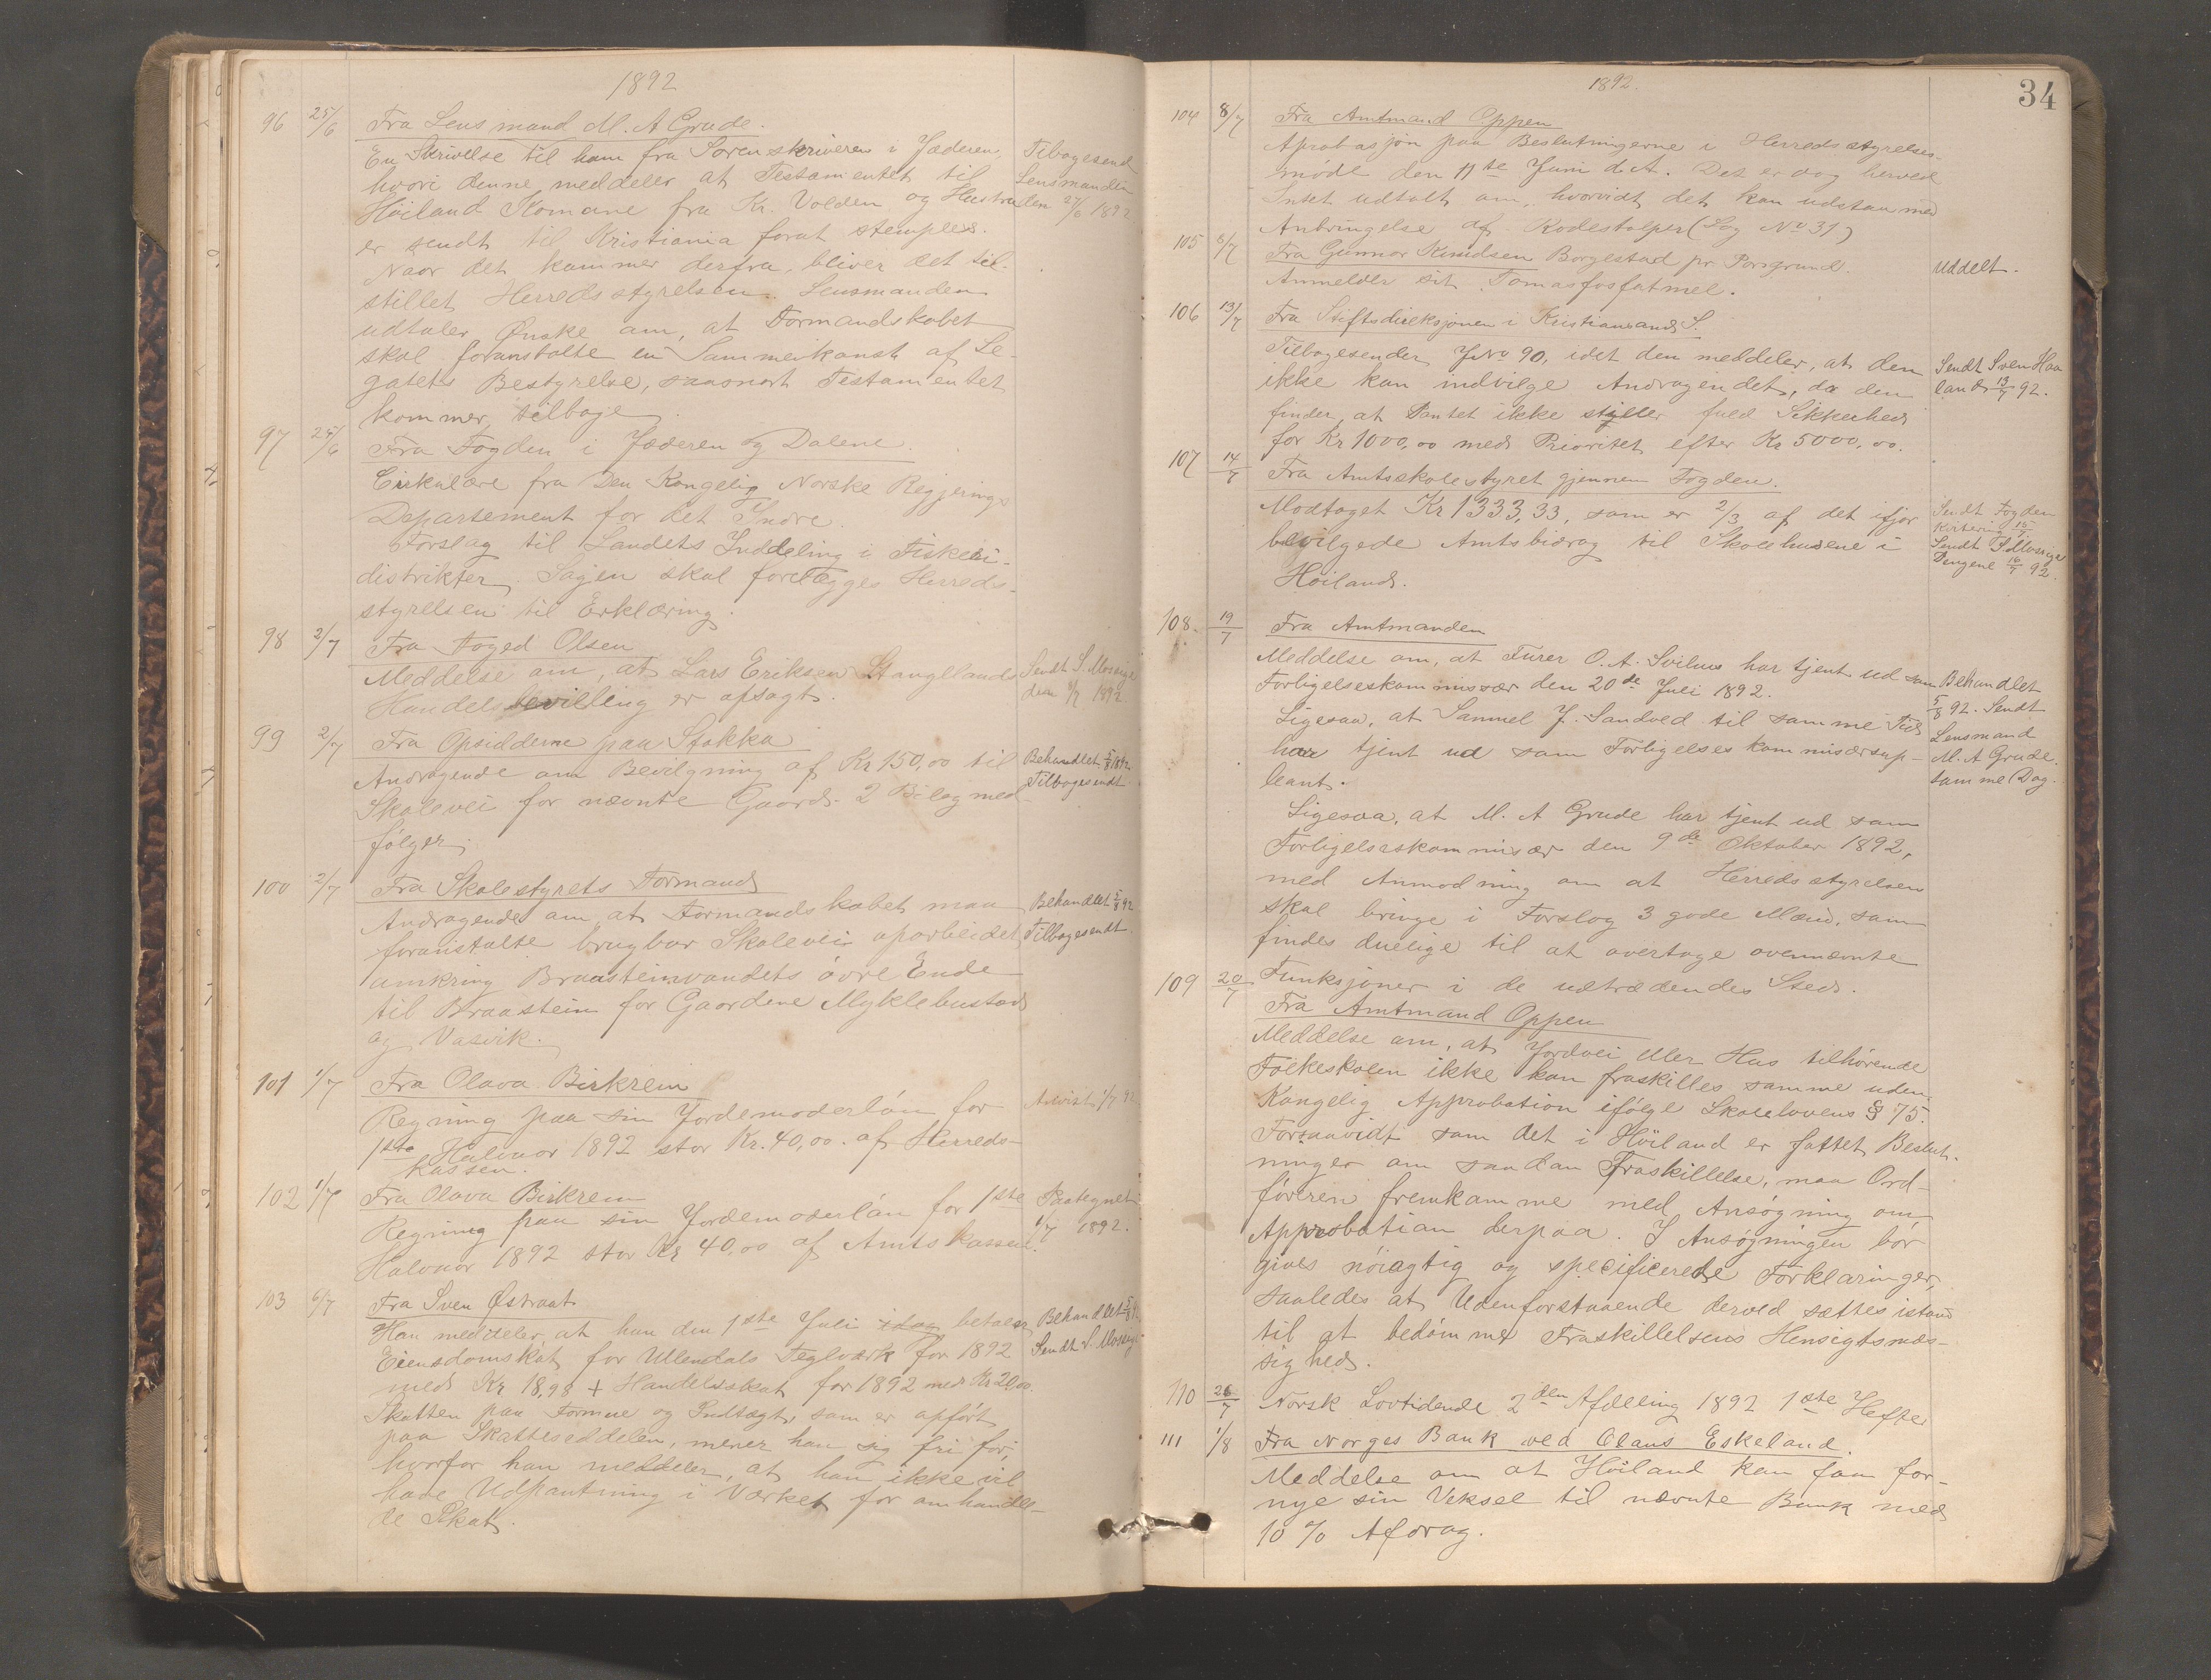 1892
96 25/6 Fra Lensmand M. A Grude.
En Skrivelse til ham fra Sorenskriveren i Jæderen,
hvori denne meddeler at Testamentet til
Höiland Komune fra Kr. Volden og Hustru
er sendt til Kristiania forat stemples.
Naar det kommer derfra, bliver det til-
stillet Herredsstyrelsen. Lensmanden
udtaler Ønske om, at Formandskabet
skal foranstalte en Sammenkomst af Le-
gatets Bestyrelse, saasnart Testamentet
kommer tilbage.
Tilbagesend
Lensmanden
den 27/6 1892
97 25/6 Fra Fogden i Jæderen og Dalene.
Cirkulære fra Den Kongelig Norske Regjerings
Departement for det Indre.
Forslag til Landets Inddeling i Fiskeri-
distrikter. Sagen skal forelægges Herreds-
styrelsen til Erklæring.
98 2/7 Fra Foged Olsen
Meddelse om, at Lars Eriksen Stangelands
Handelsbevilling er opsagt.
Sendt S. Mossige
den 4/7 1892
99 2/7 Fra Opsidderne paa Stokka
Andragende om Bevilgning af Kr 150,00 til
Skolevei for nævnte Gaard. 2 Bilag med-
følger.
Behandlet 5/8 1892
Tilbagesendt
100 2/7 Fra Skolestyrets Formand
Andragende om, at Formandskabet maa
foranstalte brugbar Skolevei oparbeidet
omkring Braasteinvandets övre Ende
til Braastein for Gaardene Myklebustad
og Vasvik.
Behandlet 5/8 92
Tilbagesendt.
101 1/7 Fra Olava Birkrem
Regning paa sin Jordemoderlön for
1ste Halvaar 1892 stor Kr. 40,00. af Herreds-
kassen.
Anvist 1/7 92
102 1/7 Fra Olava Birkrem
Regning paa sin Jordemoderlön for 1ste
Halvaar 1892 stor Kr 40,00 af Amtskassen.
Paategnet
1/7 1892.
103 6/7 Fra Sven Østraat
Han meddeler, at han den 1ste Juli idag betaler
Eiensdomskat for Ullendals Teglværk for 1892
med Kr 18,98 + Handelsskat for 1892 med Kr 20,00.
Skatten paa Formue og Indtægt, som er opfört
paa Skatteseddelen, mener han sig fri for,
hvorfor han meddeler, at han ikke vil
have Udpantning i Værket for omhandle-
de Skat.
Behandlet 5/8 92
Sendt S. Mossige
1892.
34
104 8/7 Fra Amtmand Oppen
Aprobasjon paa Beslutningerne i Herredsstyrelses-
möde den 11te Juni d.A. Det er dog herved
Intet udtalt om, hvorvidt det kan udstaa med
Anbringelse af Rodestolper (Sag No 31)
105 8/7 Fra Gunnar Knudsen Borgestad pr Porsgrund.
Anmelder sit Tomasfosfatmel.
Uddelt.
106 13/7 Fra Stiftsdireksjonen i Kristiansand S.
Tilbagesender JNo 90, idet den meddeler, at den
ikke kan indvilge Andragendet, da den
finder, at Pantet ikke stiller fuld Sikkerhed
for Kr 1000,00 med Prioritet efter Kr 5000,00.
Sendt Sven Haa
land 13/7 92.
107 14/7 Fra Amtsskolestyret gjennem Fogden.
Modtaget Kr 1333,33, som er 2/3 af det ifjor
bevilgede Amtsbidrag til Skolehusene i
Höiland.
Sendt Fogden
Kvitering 15/7.
Sendt S Mossige
Pengene 16/7 92.
108. 19/7 Fra Amtmanden
Meddelse om, at Furer O. A. Sviland har tjent ud som
Forligelseskommissær den 20de Juli 1892.
Ligesaa, at Samuel J. Sandved til samme Tid
har tjent ud som Forligelseskommisærsup-
leant.
Ligesaa, at M. A Grude har tjent ud som
Forligelseskommisær den 9de Oktober 1892,
med Anmodning om at Herredsstyrelsen
skal bringe i Forslag 3 gode Mænd, som
findes duelige til at overtage ovennævnte
Funksjoner i de udtrædendes Sted.
Behandlet
5/8 92. Sendt
Lensmand
M. A Grude.
samme Dag.
109 20/7 Fra Amtmand Oppen
Meddelse om, at Jordvei eller Hus tilhörende
Folkeskolen ikke kan fraskilles samme uden
Kongelig Approbation ifölge Skolelovens § 75.
Forsaavidt som det i Höiland er fattet Beslut-
ninger om saadan Fraskillelse, maa Ord-
föreren fremkomme med Ansøgning om
Approbation derpaa. I Ansøgningen bör
gives nöiagtig og specificerede Forklaringer,
saaledes at Udenforstaaende derved sættes istand
til at bedömme Fraskillelsens Hensigtsmæs-
sighed.
110 26/7 Norsk Lovtidende 2den Afdeling 1892 1ste Hefte
111 1/8 Fra Norges Bank ved Claus Eskeland.
Meddelse om at Höiland kan faa for-
nye sin Veksel til nævnte Bank med
10 % Afdrag.